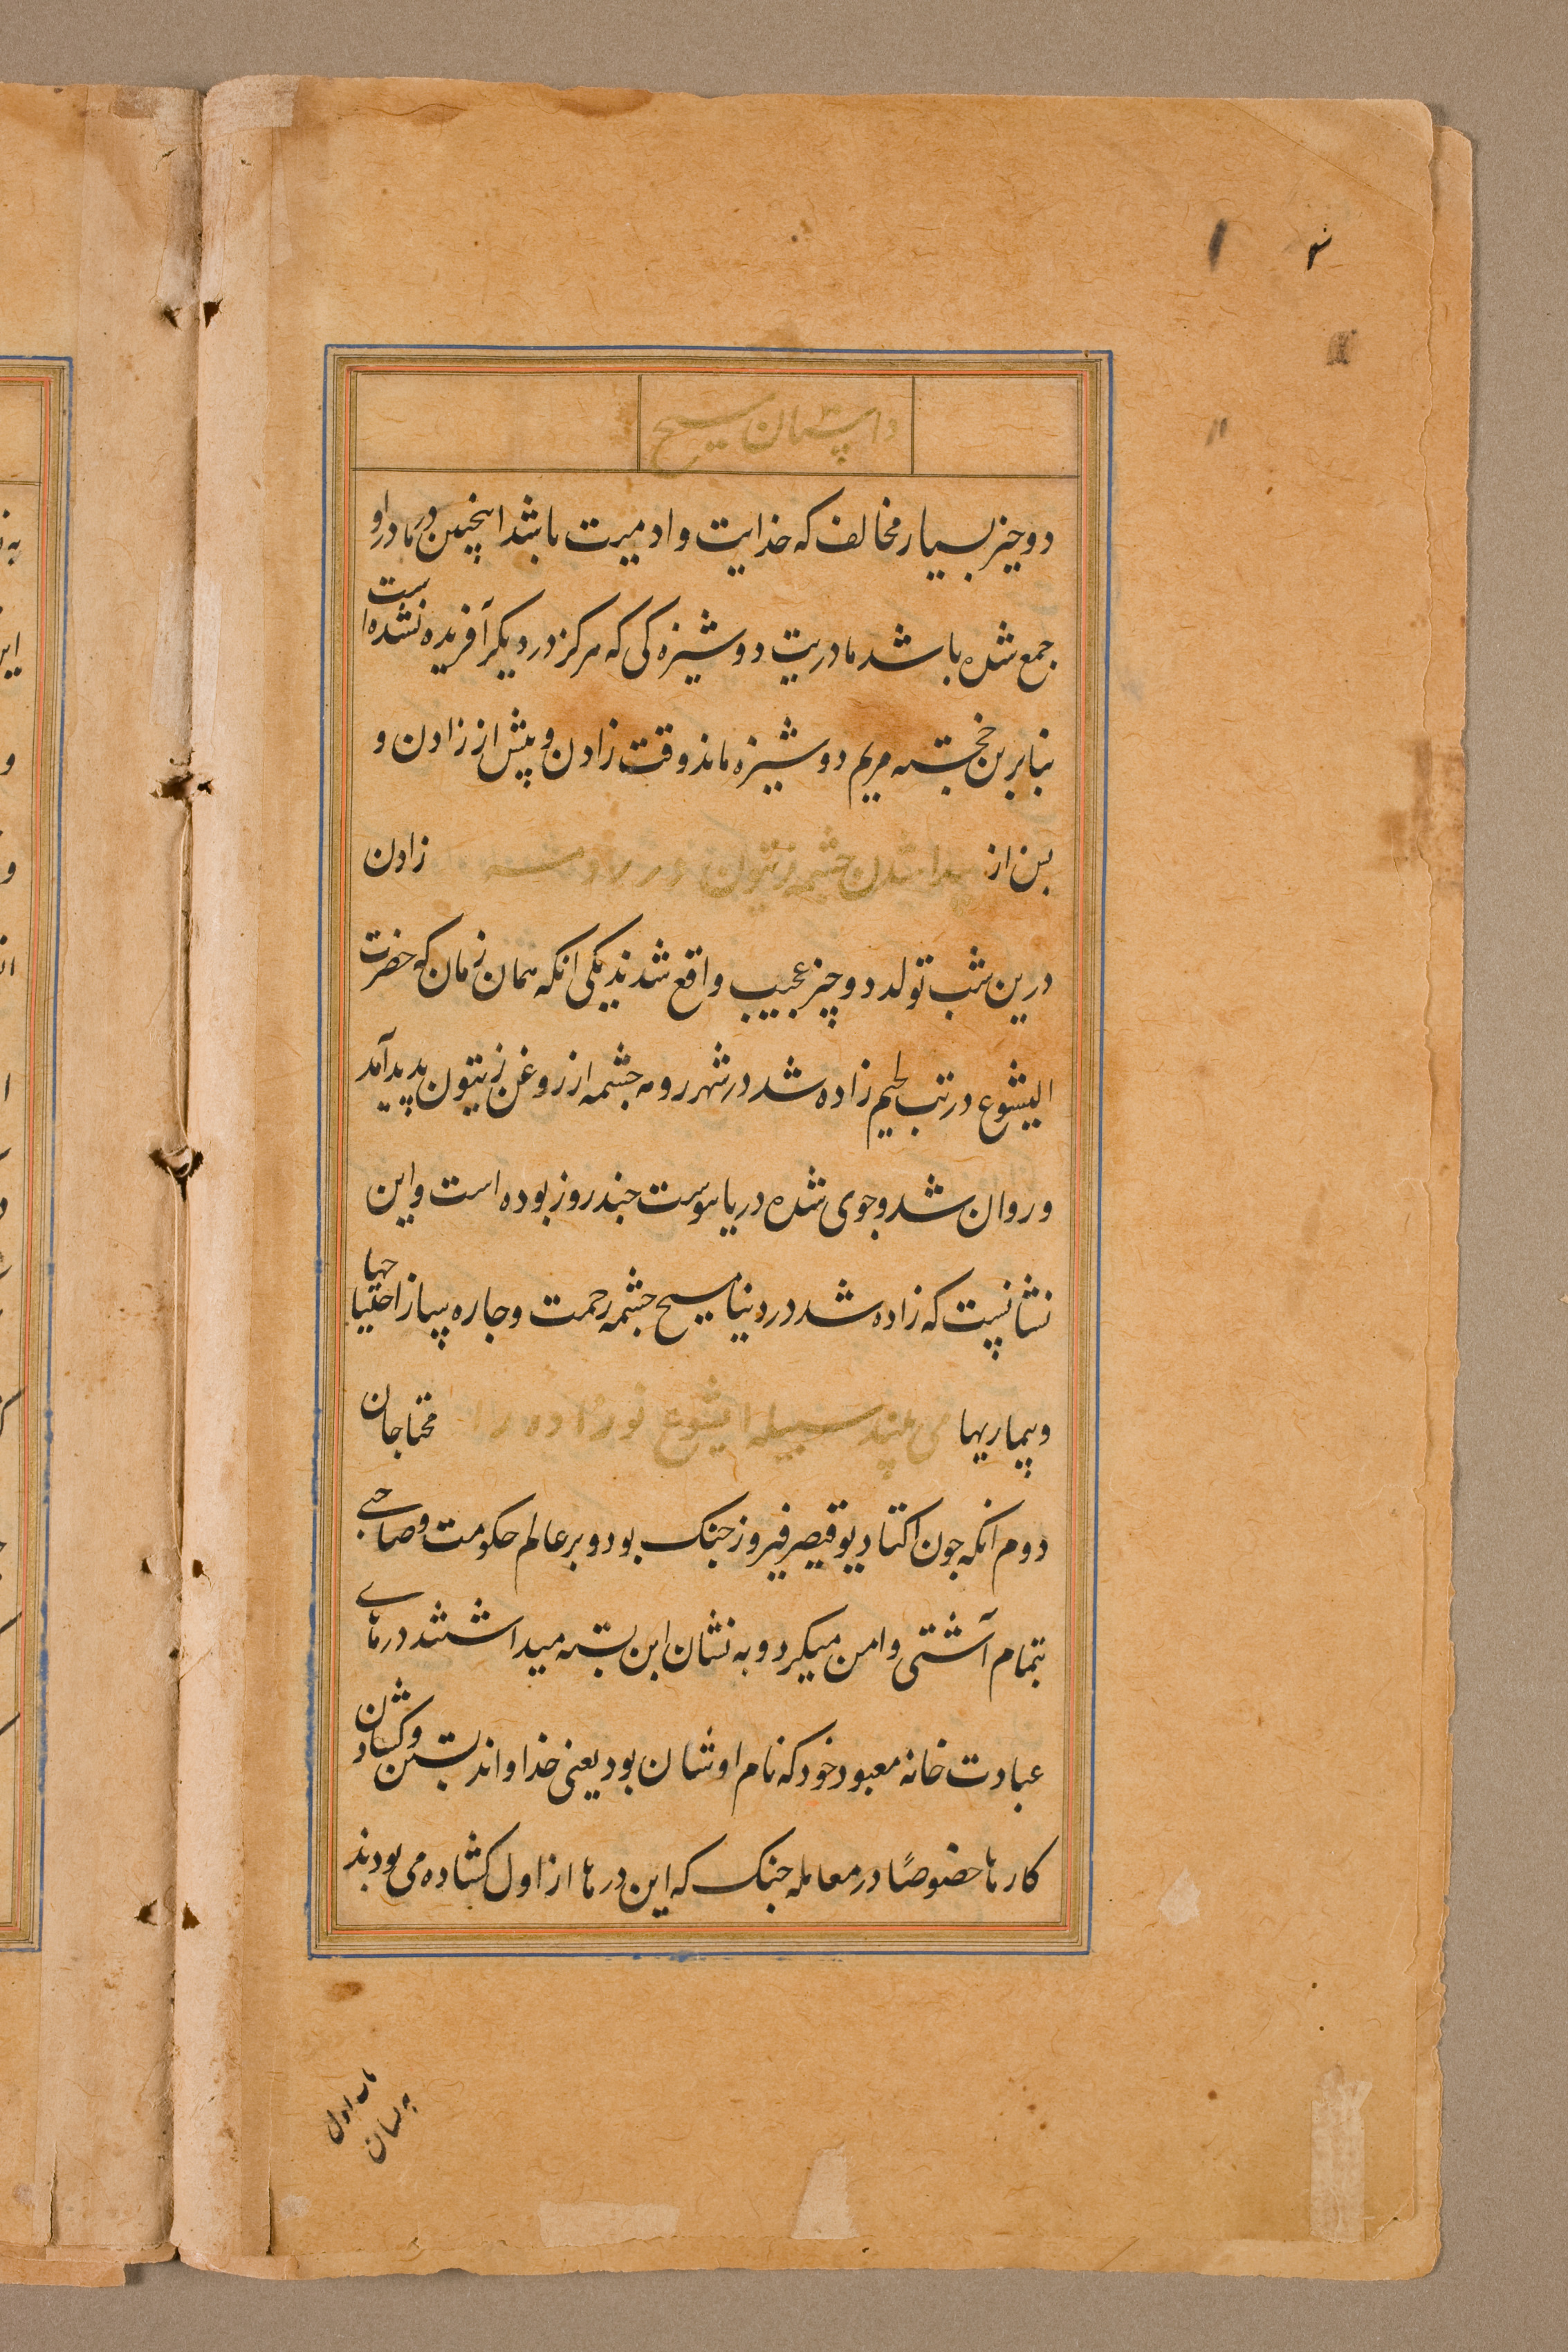 ۴ ۱
داستان مسیح
دو چیز بسیار مخالف که خدایت و ادمیت باشد اینچنین در مادر او
جمع شده باشد مادریت دوشیزه کی که هرکز در دیکر آفریده نشده است
بنابرین خجسته مریم دوشیزه ماند وقت زادن و پیش از زادن و
پس از زادن
پیدا شدن چشمه زیتون در رومه
درین شب تولد دو چیز عجیب واقع شدند یکی انکه همان زمان که حضرت
ایشوع در بیت لحیم زاده شد در شهر رومه چشمه از روغن زیتون پدید آمد
و روان شد و جوی شده در یا پوست چند روز بوده است و این
نشانیست که زاده شد در دنیا مسیح چشمه رحمت و چاره ساز احتیاجها
و بیماریها محتاجان
می بیند سبیله ایشوع نو زاده را
دوم انکه چون اکتادیو قیصر فیروز جنک بود و بر عالم حکومت و صاحبی
بتمام آشتی و امن میکرد و به نشان این بسته میداشتند درهای
عبادت خانه معبود خود که نام او شان بود یعنی خداوند بستن و کشادن
کارها خصوصًا در معامله جنک که این درها از اول کشاده می بودند